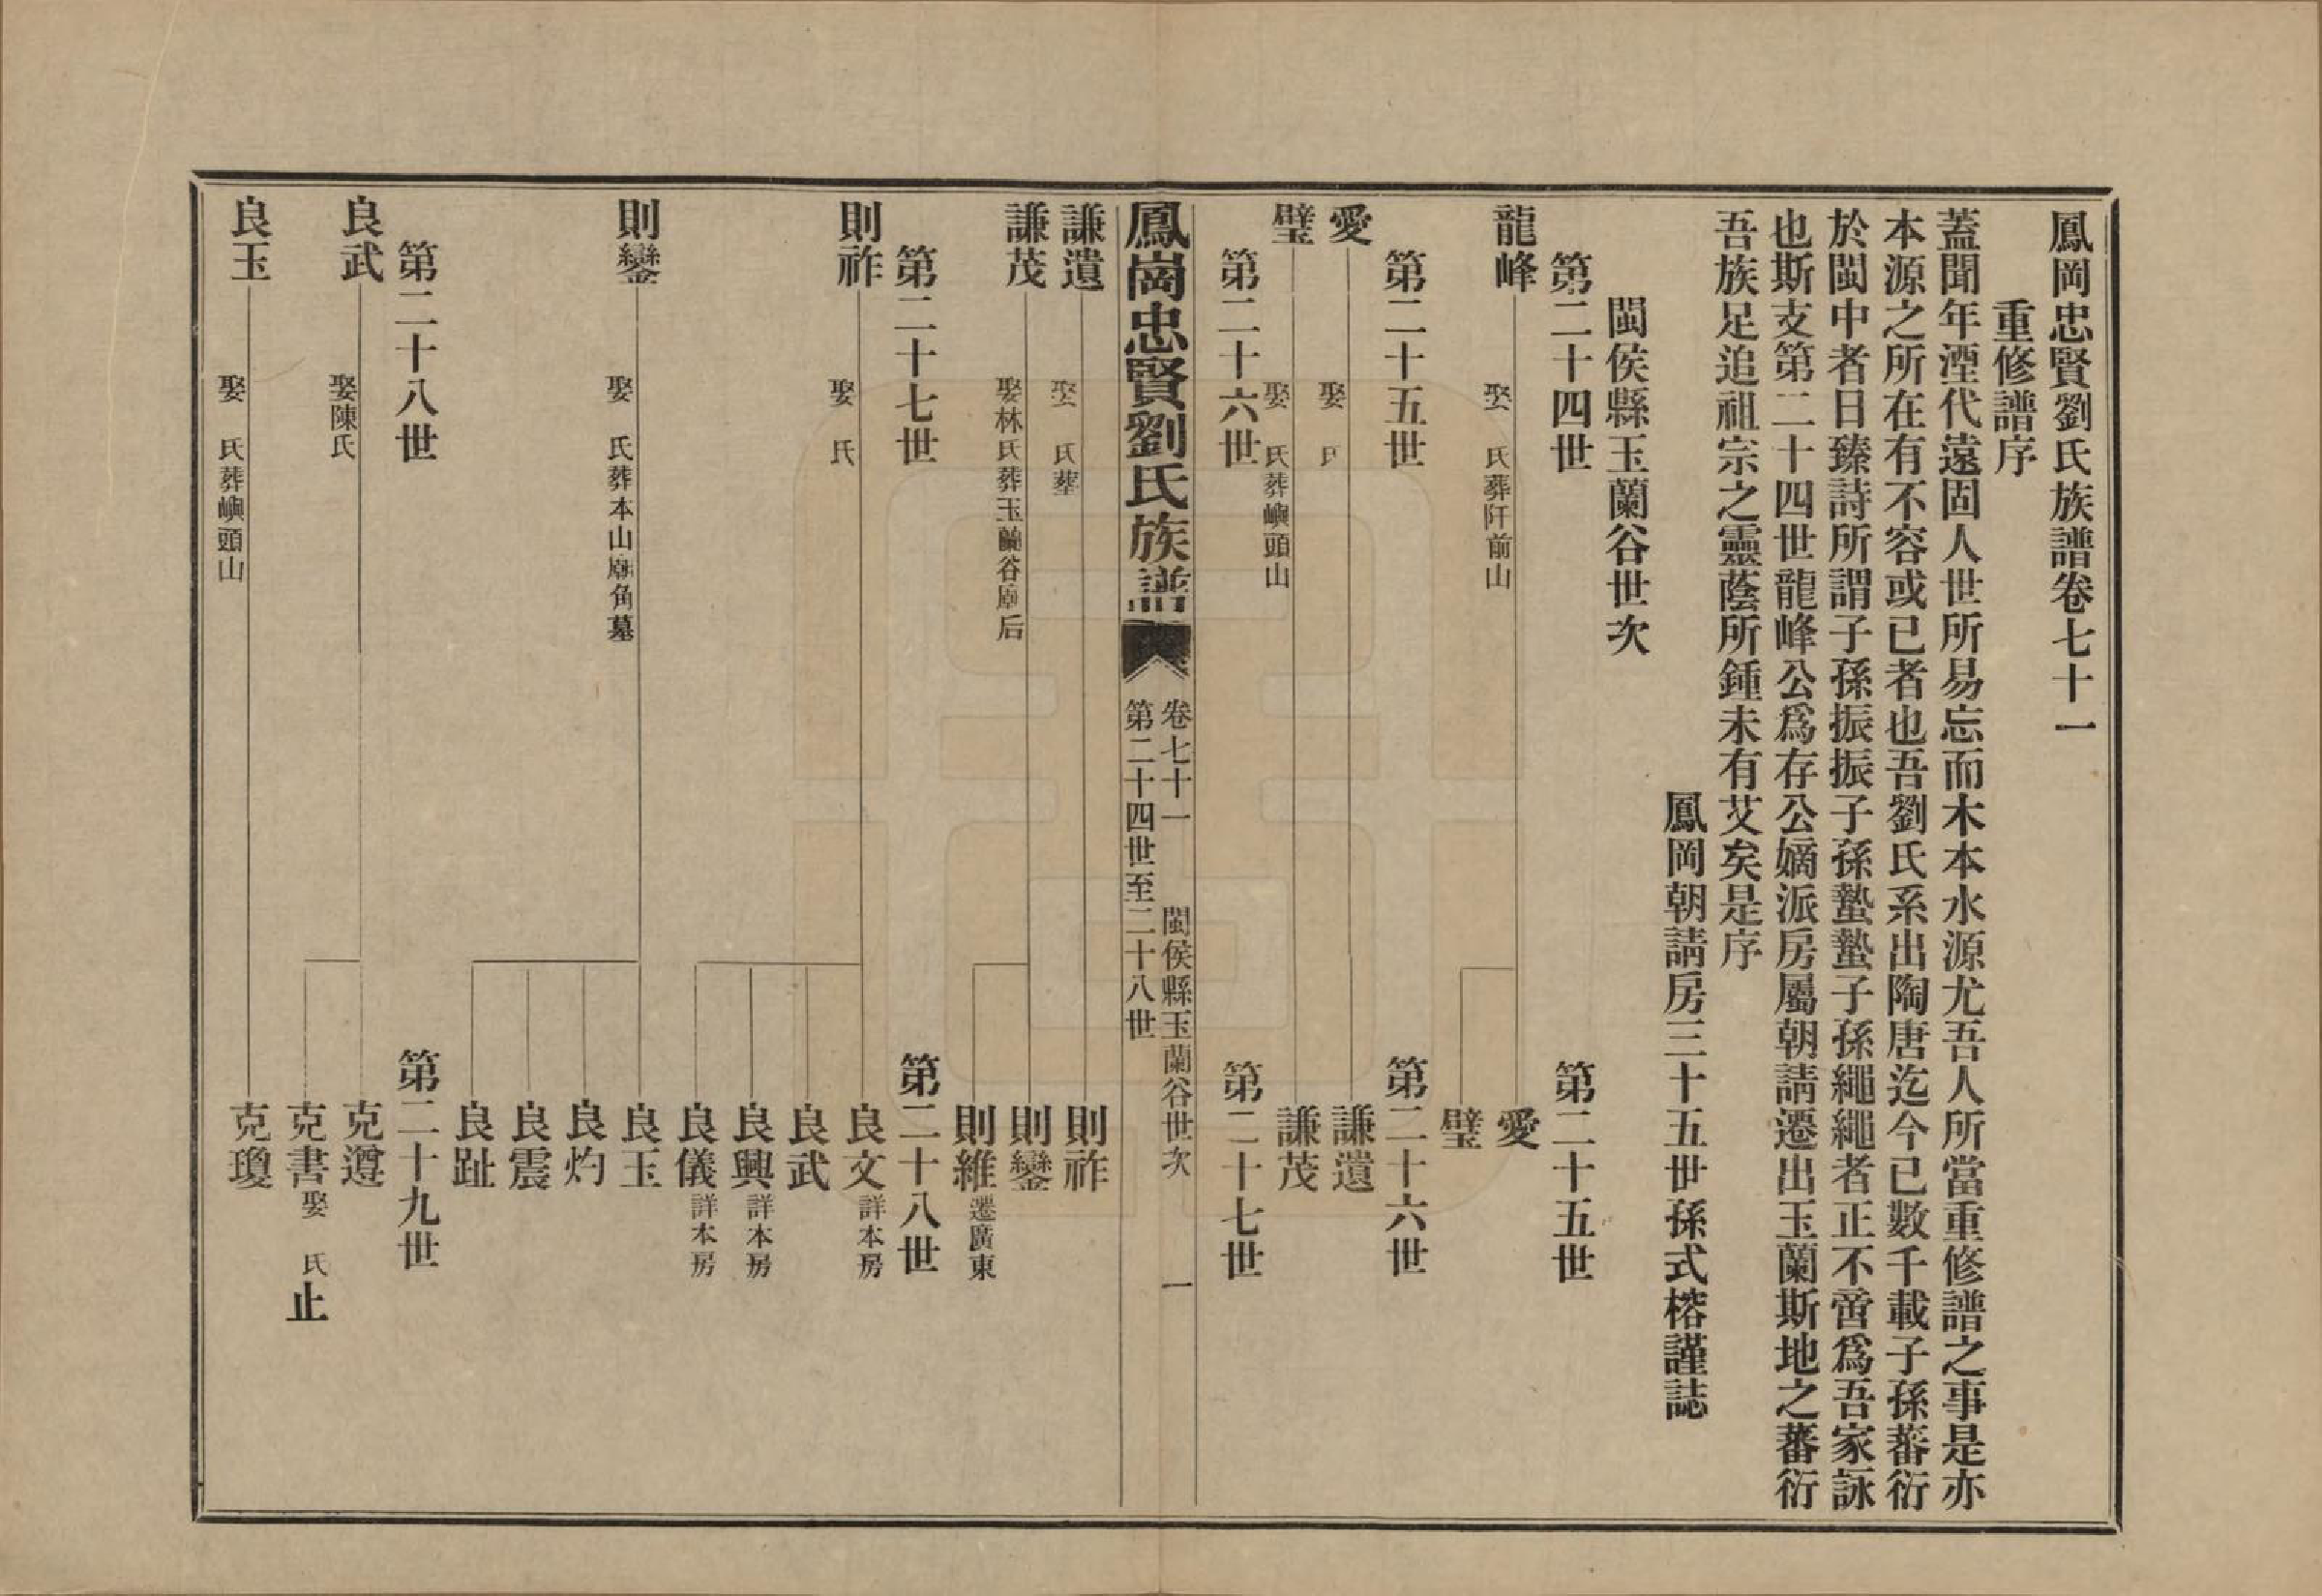 鳳岡忠賢劉氏族譜卷七十一
重修譜序
蓋聞年湮代遠固人世所易忘而木本水源尤吾人所當重修譜之事是亦
本源之所在有不容或已者也吾劉氏系出陶唐迄今已數千載子孫蕃衍
於閩中者日臻詩所謂子孫振振子孫蟄蟄子孫繩繩者正不啻爲吾家詠
也斯支第二十四世龍峰公爲存公嫡派房屬朝請遷出玉蘭斯地之蕃衍
吾族足追祖宗之靈蔭所鍾未有艾矣是序
鳳岡朝請房三十五世孫式榕謹誌
閩侯縣玉蘭谷世次
第二十四世
第二十五世
龍峰
娶 氏葬阡前山
愛
璧
第二十五世
第二十六世
愛
娶 氏
謙遺
璧
娶 氏葬嶼頭山
謙茂
第二十六世
第二十七世
鳳崗忠賢劉氏族譜
卷七十一 閩侯縣玉蘭谷世次 一
第二十四世至二十八世
謙遺
娶 氏葬
則祚
謙茂
娶林氏葬玉蘭谷廟后
則鑾
則維 遷廣東
第二十七世
第二十八世
則祚
娶 氏
良文 詳本房
良武
良興 詳本房
良儀 詳本房
則鑾
娶 氏葬本山廟角墓
良玉
良灼
良震
良趾
第二十八世
第二十九世
良武
娶陳氏
克遵
克書 娶 氏 止
良玉
娶 氏葬嶼頭山
克瓊